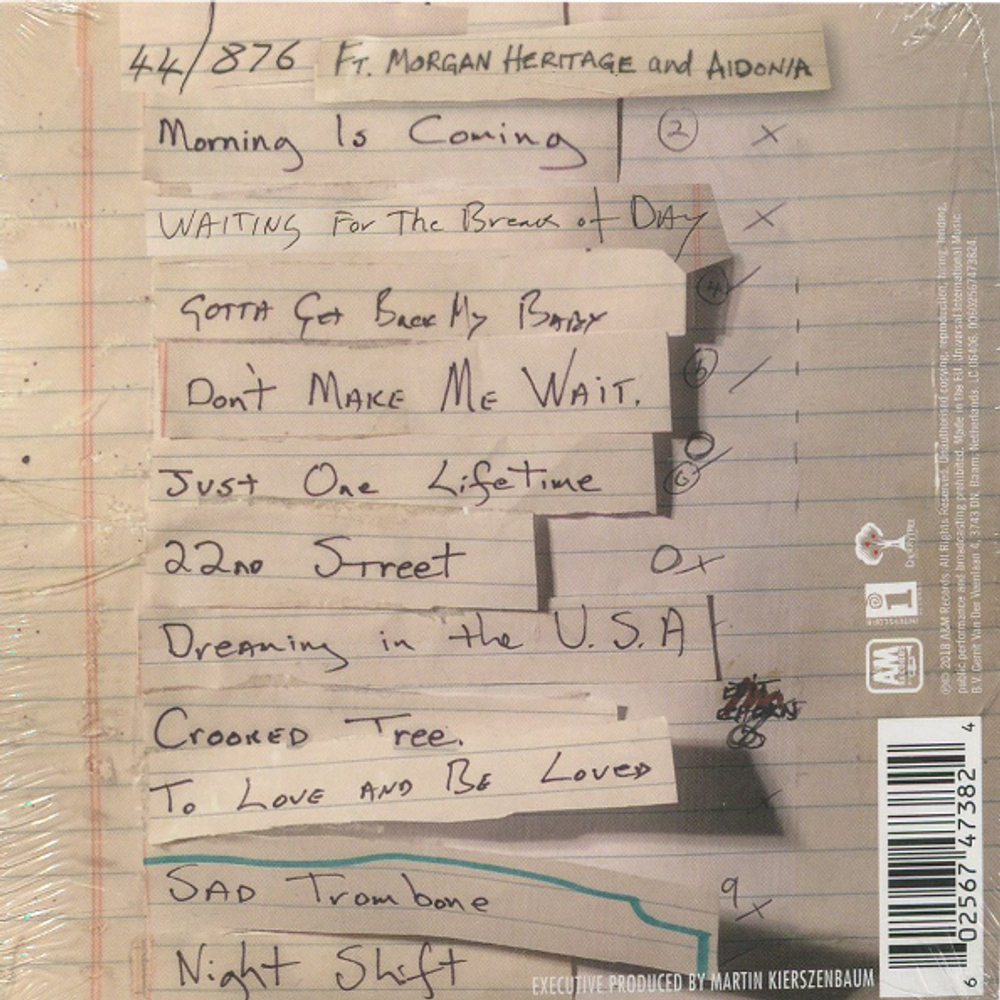 44/876 FT. MORGAN HERITAGE and AIDONIA
Morning Is Coming ② x
WAITING For The Break of DAY x
GOTTA Get Back My BABY ④
Don't MAKE ME WAIT. ⑤
Just One LifeTime ⑥
22ND STreet 0x
Dreaming in the U.S.A
CROOKED Tree.
To LOVE AND BE LOVED x
SAD Trombone 9 x
Night Shift
EXECUTIVE PRODUCED BY MARTIN KIERSZENBAUM
CHERRYTREE
INTERSCOPE
A&M
RECORDS
℗© 2018 A&M Records. All Rights Reserved. Unauthorised copying, reproduction, hiring, lending,
public performance and broadcasting prohibited. Made in the EU. Universal International Music
B.V. Gerrit Van Der Veenlaan 4, 3743 DN, Baarn, Netherlands. LC 06406. 00602567473824.
6 02567 47382 4